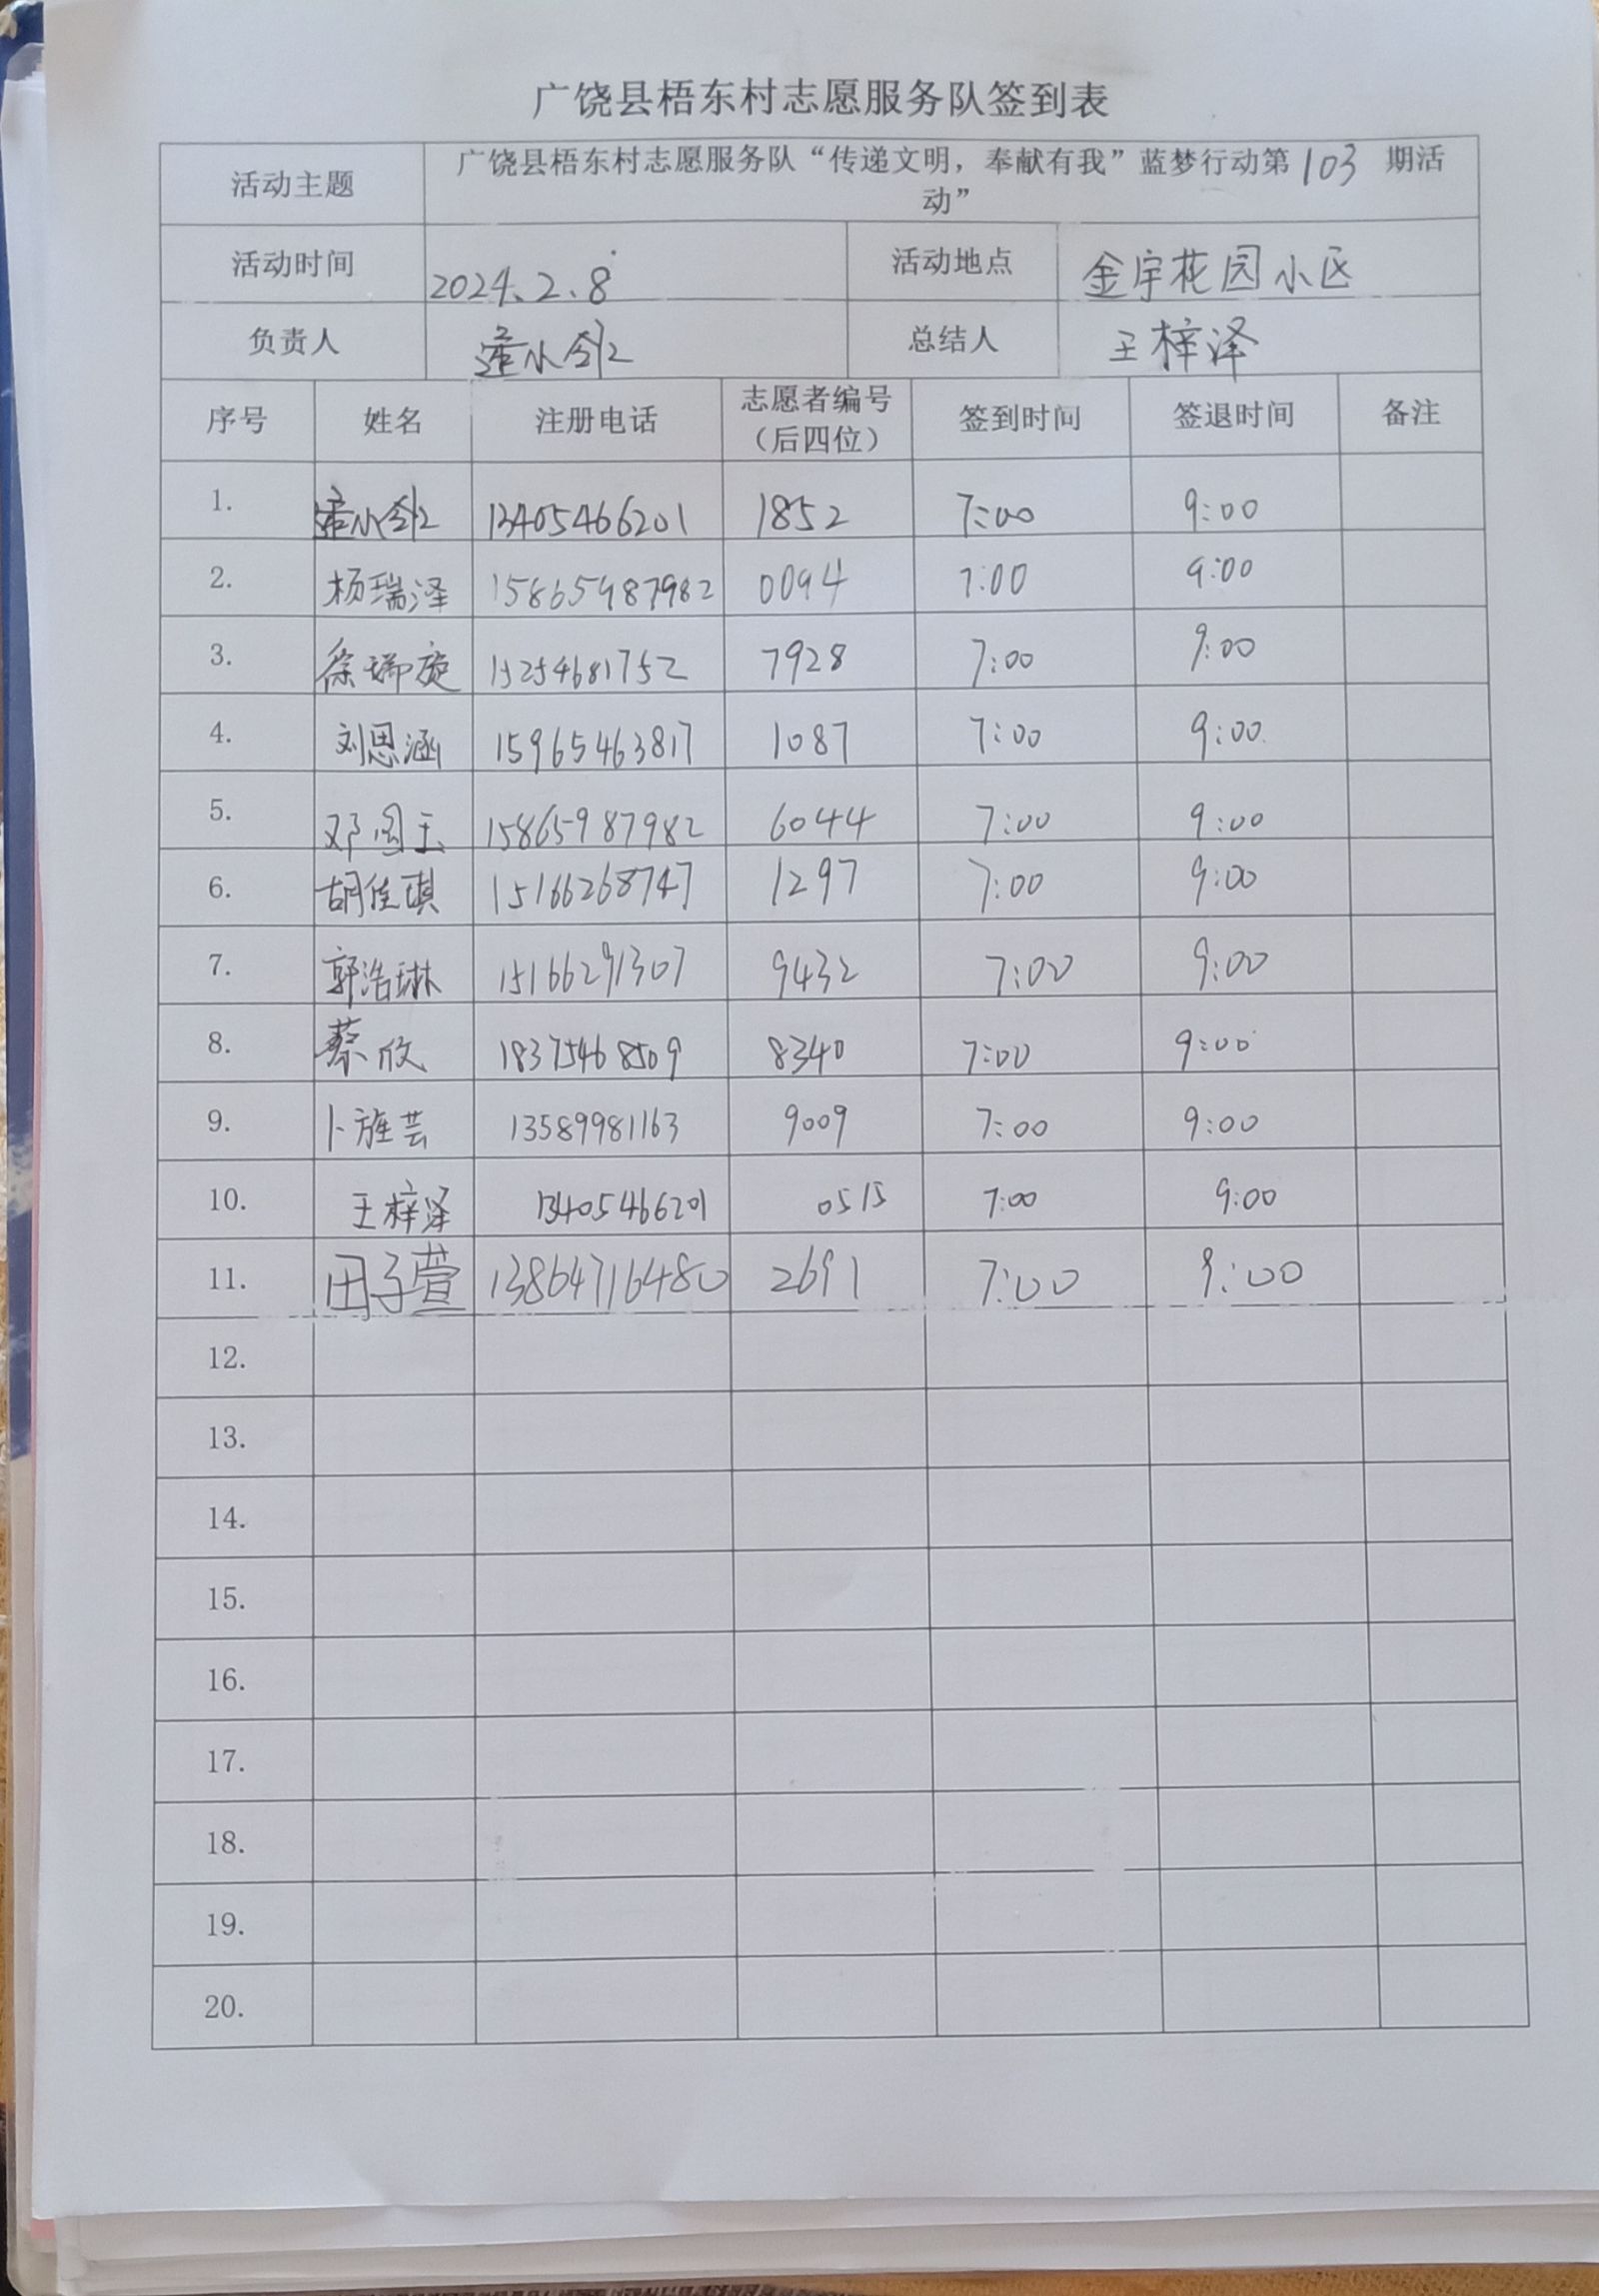 广饶县梧东村志愿服务队签到表
活动主题 广饶县梧东村志愿服务队“传递文明，奉献有我”蓝梦行动第103期活
动”
活动时间 2024.2.8 活动地点 金宇花园小区
负责人 总结人 王梓泽
序号 姓名 注册电话 志愿者编号（后四位） 签到时间 签退时间 备注
1. 13405466201 1852 7:00 9:00
2. 杨瑞泽 15865987982 0094 7:00 9:00
3. 徐娜旋 15254681752 7928 7:00 9:00
4. 刘思涵 15965463817 1087 7:00 9:00
5. 邓图玉 15865987982 6044 7:00 9:00
6. 胡佳琪 15166268747 1297 7:00 9:00
7. 郭浩琳 15166291307 9432 7:00 9:00
8. 蔡欣 18375468509 8340 7:00 9:00
9. 卜旌芸 13589981163 9009 7:00 9:00
10. 王梓泽 13405466201 0515 7:00 9:00
11. 田子萱 13864716480 2691 7:00 9:00
12.
13.
14.
15.
16.
17.
18.
19.
20.